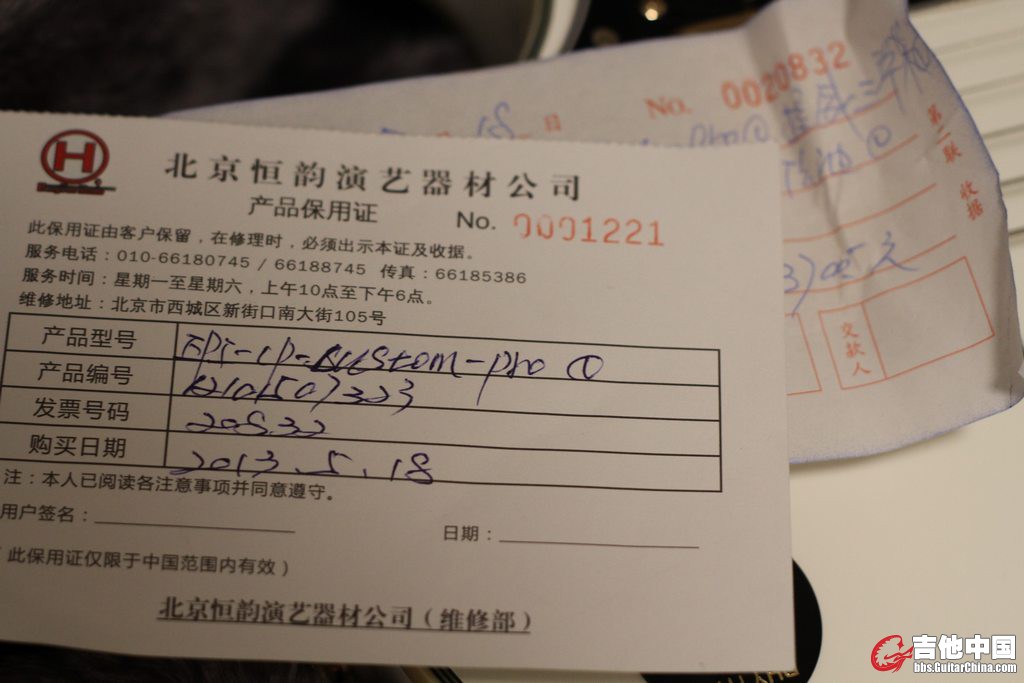 No. 0020832
日
第二联
收据
交款人
H
北京恒韵演艺器材公司
产品保用证 No. 0001221
此保用证由客户保留，在修理时，必须出示本证及收据。
服务电话：010-66180745 / 66188745 传真：66185386
服务时间：星期一至星期六，上午10点至下午6点。
维修地址：北京市西城区新街口南大街105号
产品型号 EPI-LP-Custom-pro ①
产品编号
发票号码 20832
购买日期 2013.5.18
注：本人已阅读各注意事项并同意遵守。
用户签名： 日期：
此保用证仅限于中国范围内有效）
北京恒韵演艺器材公司（维修部）
吉他中国
bbs.GuitarChina.com